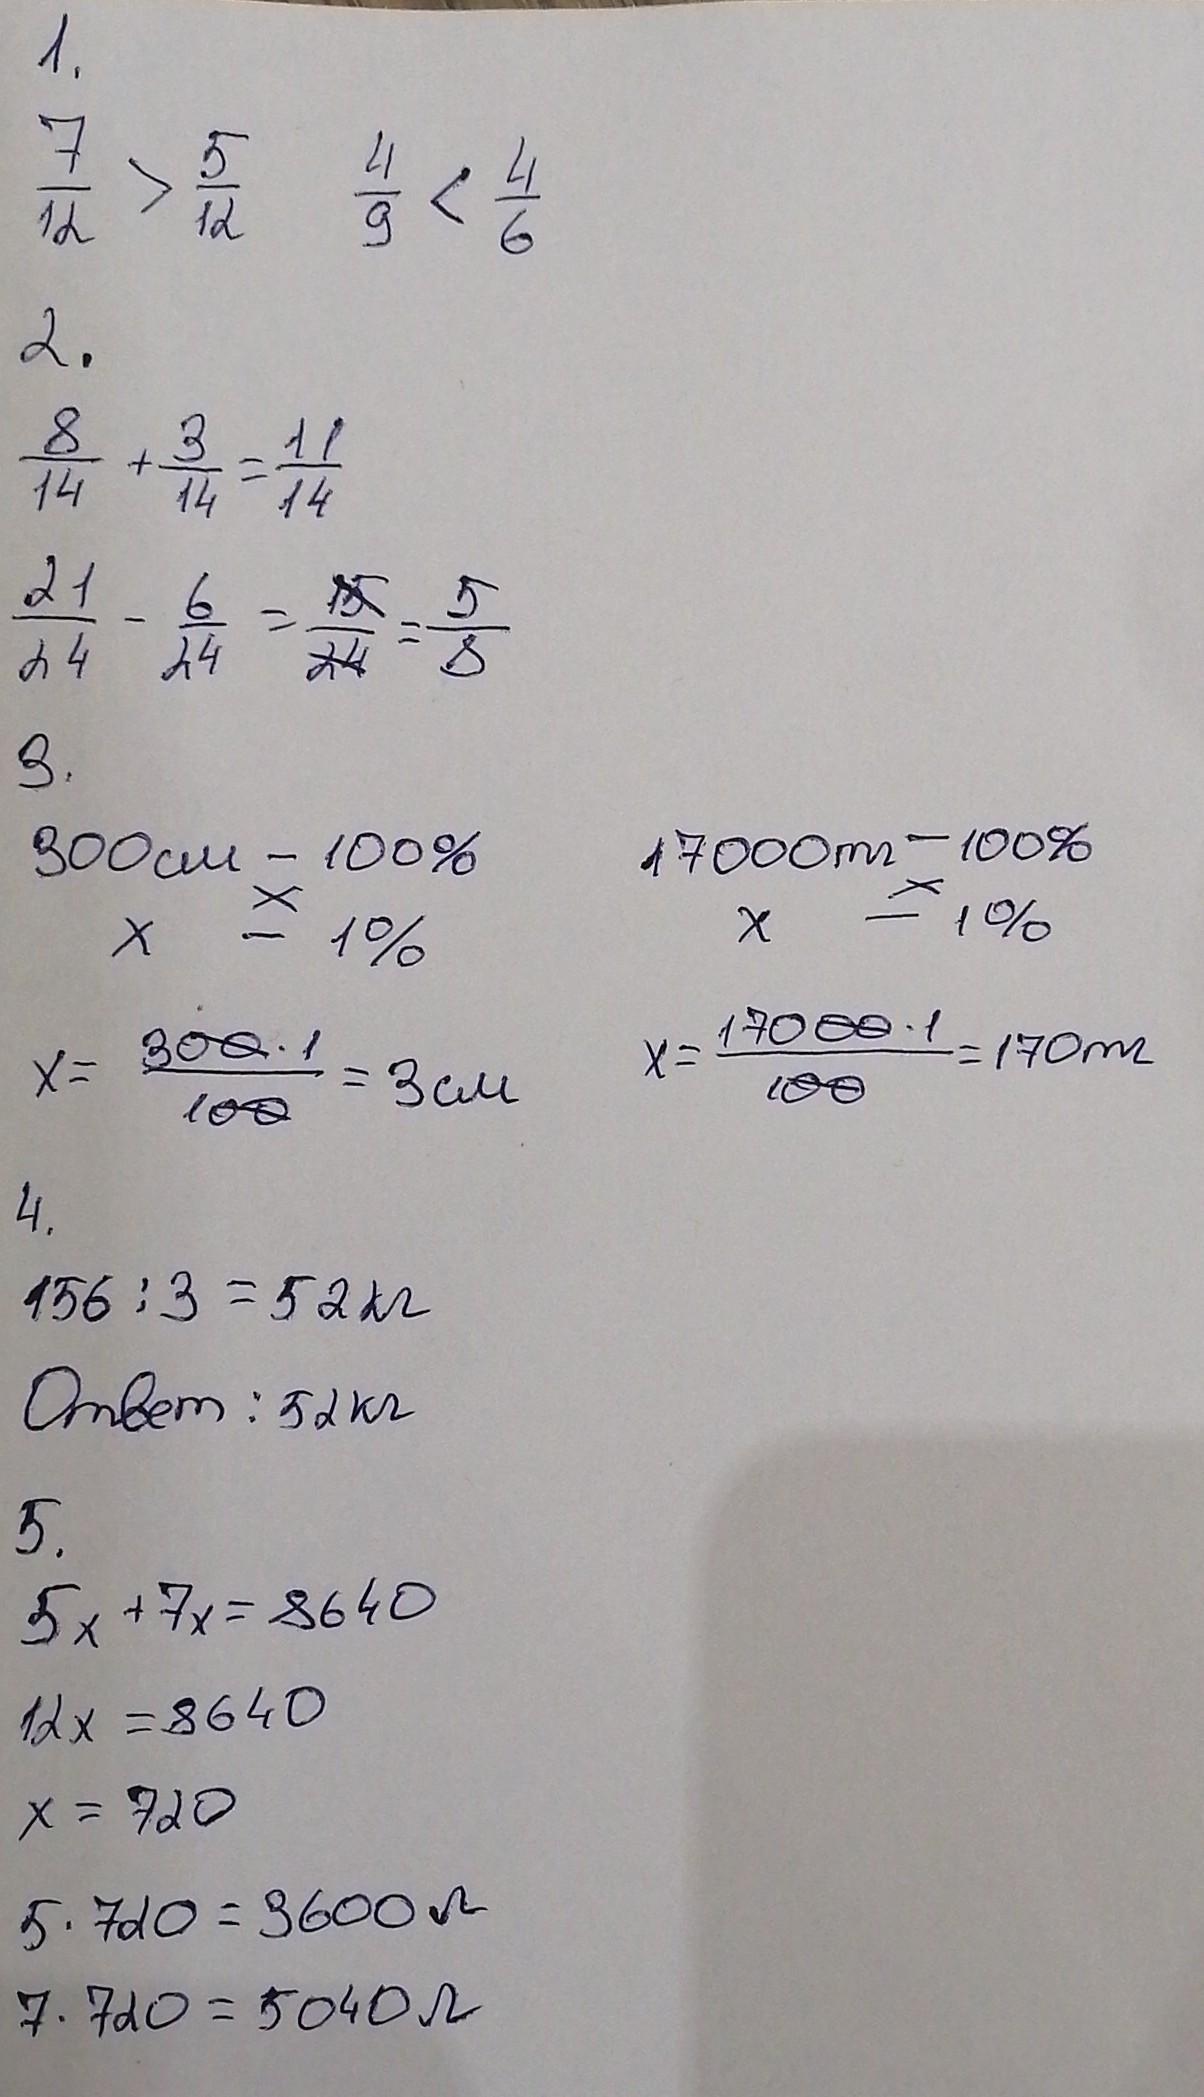 1.
7/12 > 5/12 4/9 < 4/6
2.
8/14 + 3/14 = 11/14
21/24 - 6/24 = 15/24 = 5/8
3.
300см – 100% 17000т – 100%
x – 1% x – 1%
x = 300·1/100 = 3см x = 17000·1/100 = 170т
4.
156 : 3 = 52кг
Ответ : 52кг
5.
5x + 7x = 8640
12x = 8640
x = 720
5·720 = 3600л
7·720 = 5040л